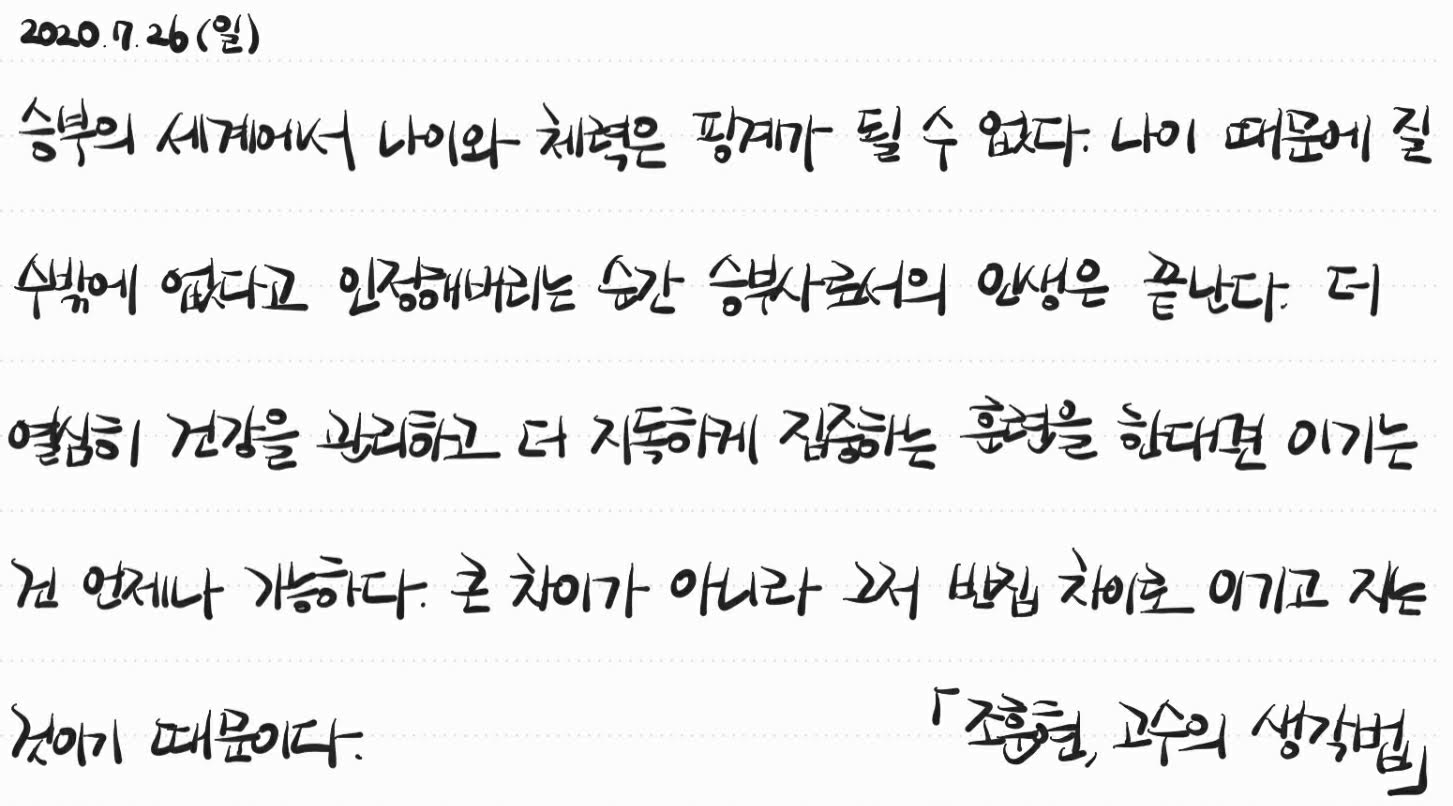 2020.7.26(일)
승부의 세계에서 나이와 체력은 핑계가 될 수 없다. 나이 때문에 질
수밖에 없다고 인정해버리는 순간 승부사로서의 인생은 끝난다. 더
열심히 건강을 관리하고 더 지독하게 집중하는 훈련을 한다면 이기는
건 언제나 가능하다. 큰 차이가 아니라 그저 반집 차이로 이기고 지는
것이기 때문이다.
「조훈현, 고수의 생각법」